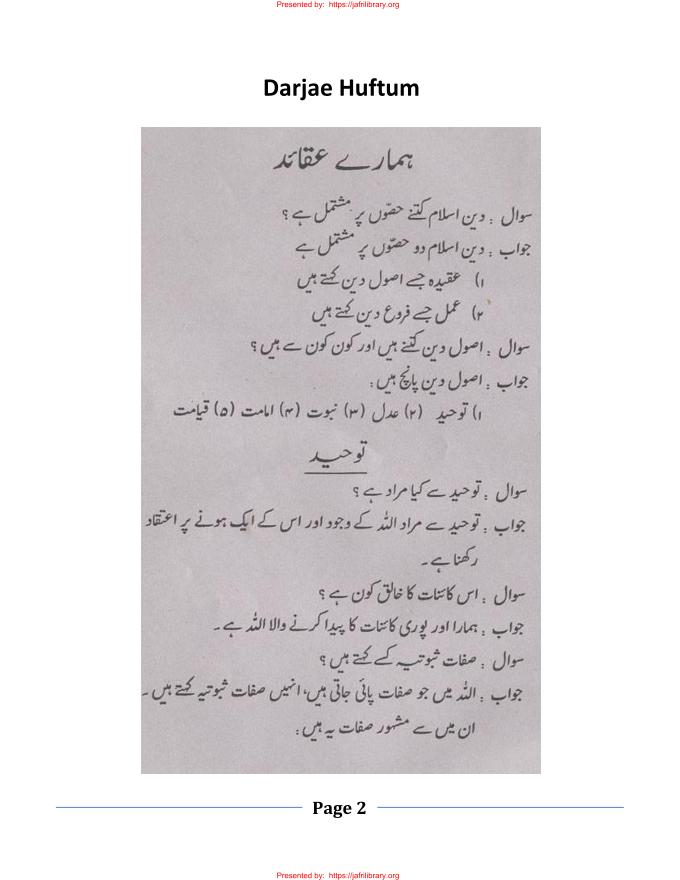 Presented by: https://jafrilibrary.org
Darjae Huftum
ہمارے عقائد
سوال : دین اسلام کتنے حصّوں پر مشتمل ہے ؟
جواب : دین اسلام دو حصّوں پر مشتمل ہے
۱) عقیدہ جسے اصول دین کہتے ہیں
۲) عمل جسے فروع دین کہتے ہیں
سوال : اصول دین کتنے ہیں اور کون کون سے ہیں ؟
جواب : اصول دین پانچ ہیں :
۱) توحید (۲) عدل (۳) نبوت (۴) امامت (۵) قیامت
توحید
سوال : توحید سے کیا مراد ہے ؟
جواب : توحید سے مراد اللہ کے وجود اور اس کے ایک ہونے پر اعتقاد
رکھنا ہے ۔
سوال : اس کائنات کا خالق کون ہے ؟
جواب : ہمارا اور پوری کائنات کا پیدا کرنے والا اللہ ہے ۔
سوال : صفات ثبوتیہ کسے کہتے ہیں ؟
جواب : اللہ میں جو صفات پائی جاتی ہیں، انہیں صفات ثبوتیہ کہتے ہیں ۔
ان میں سے مشہور صفات یہ ہیں :
Page 2
Presented by: https://jafrilibrary.org